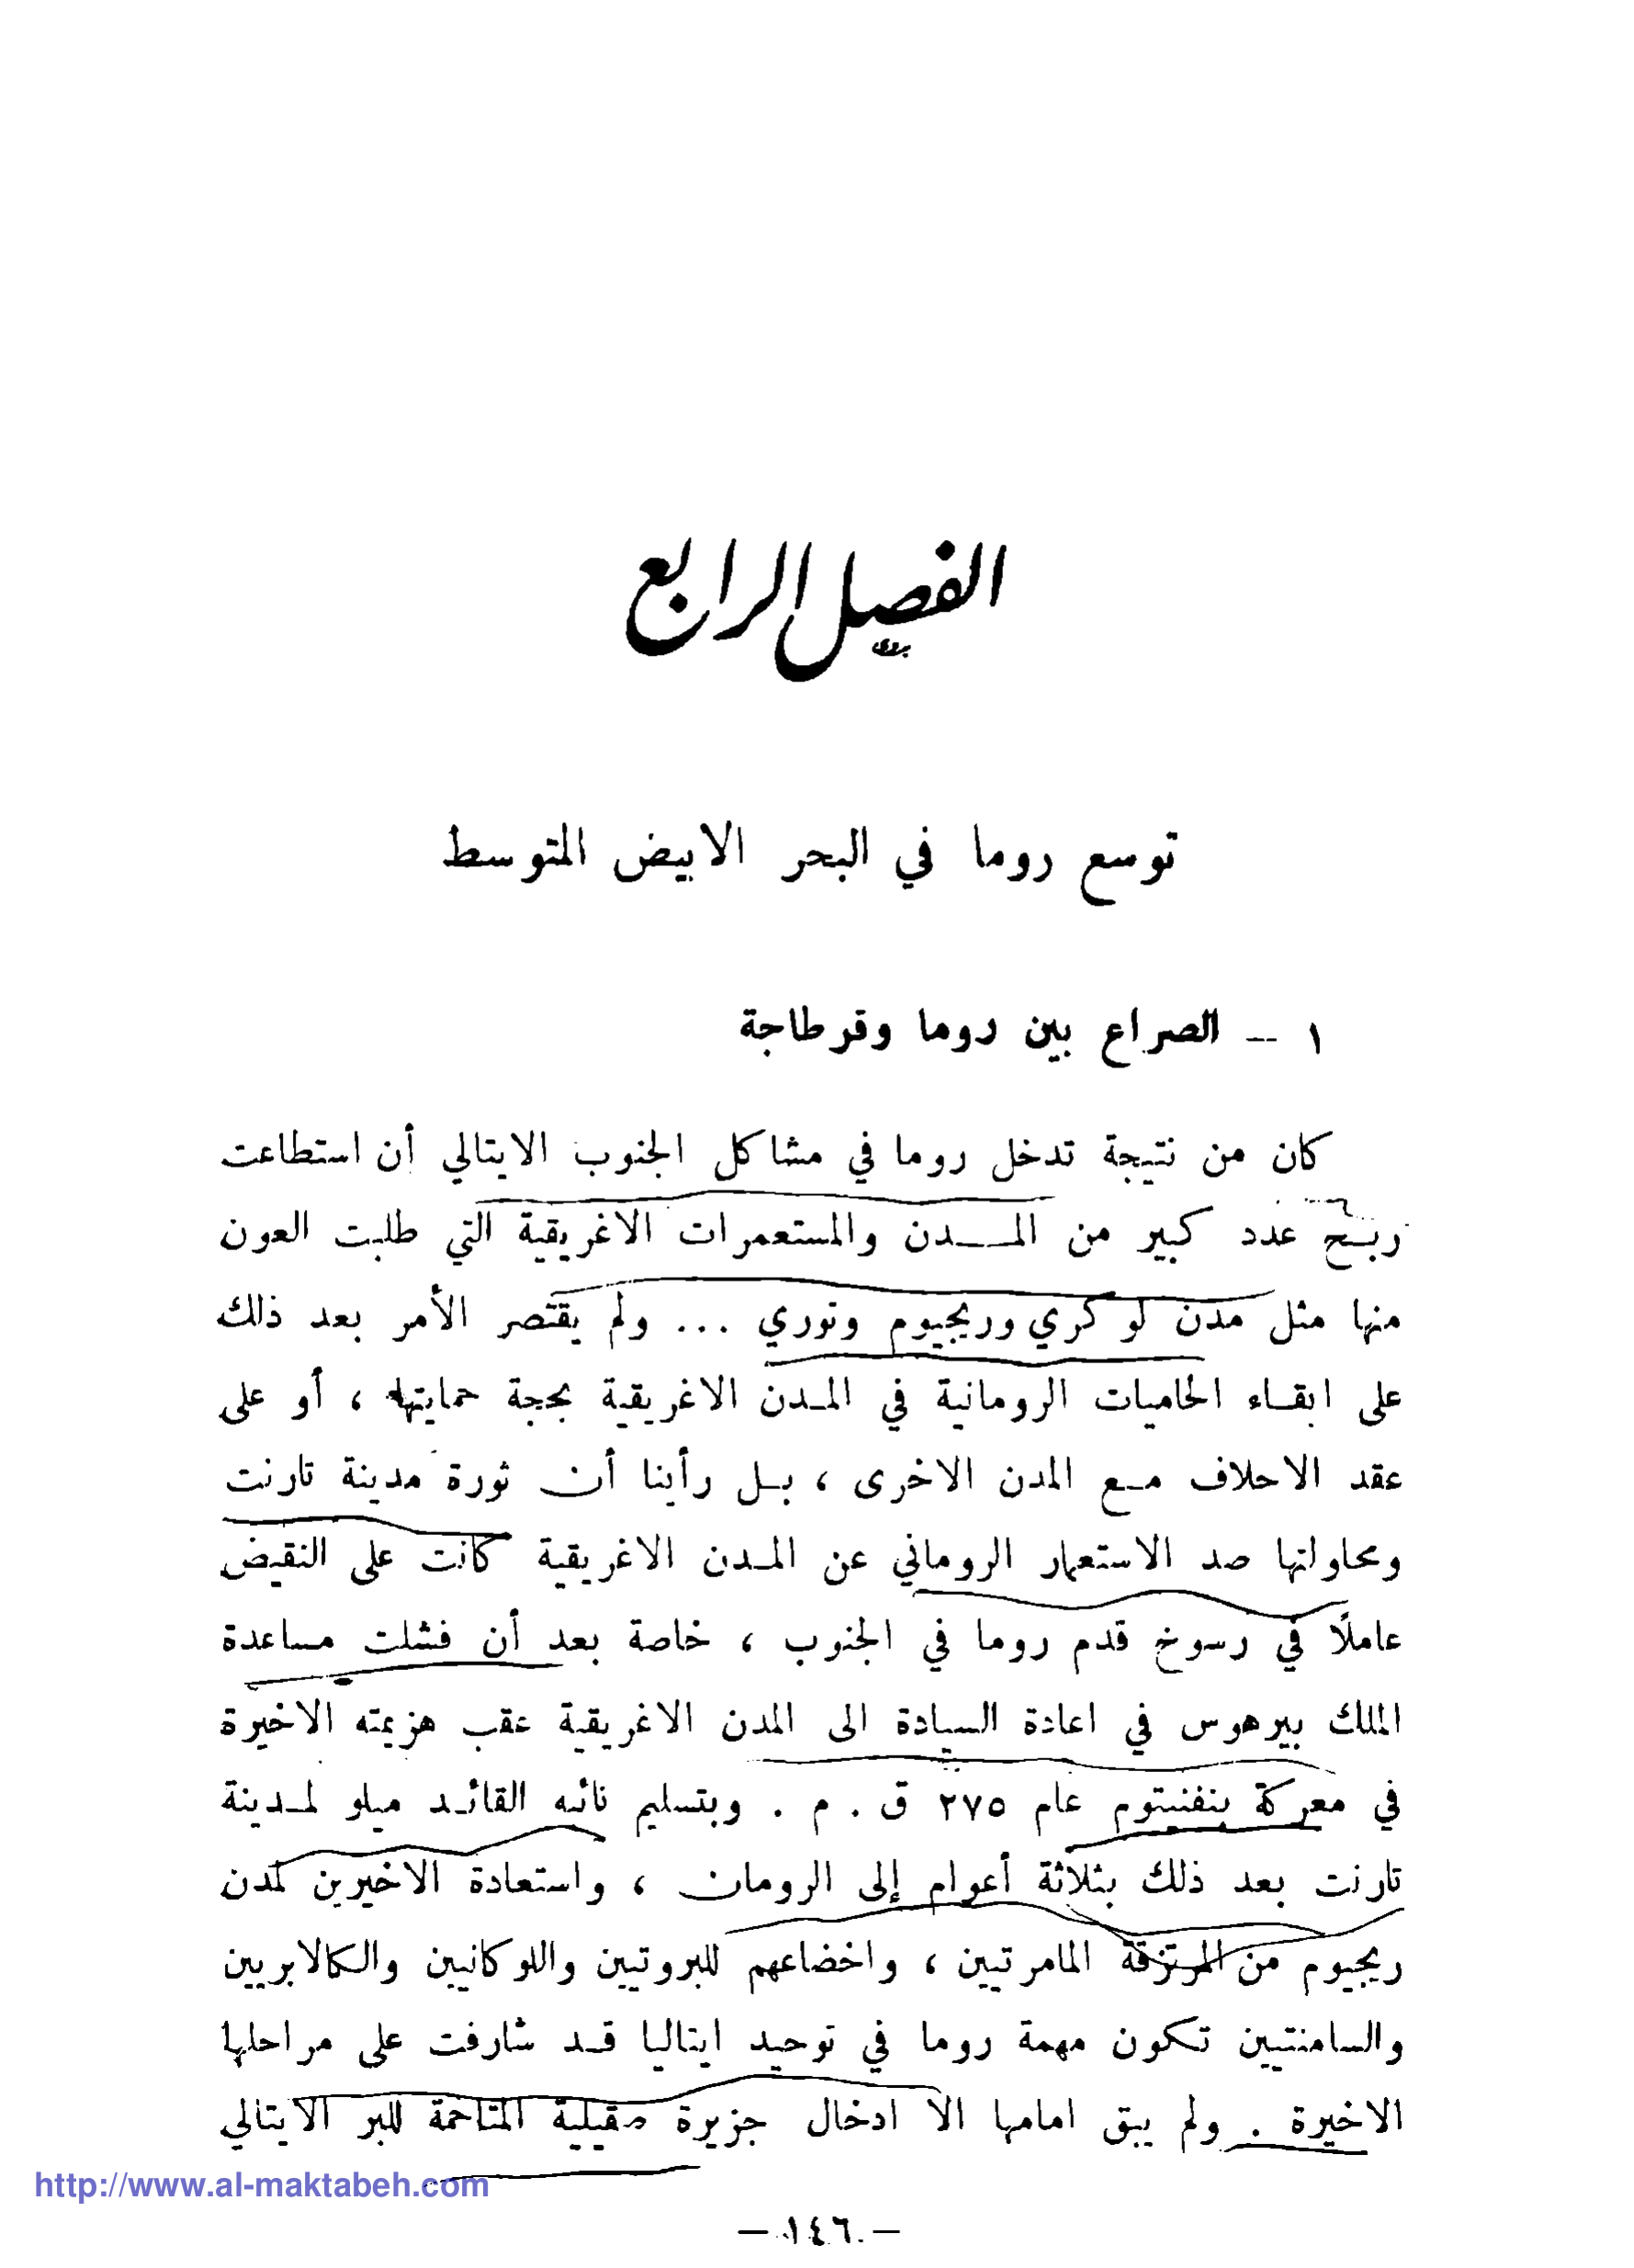 الفصل الرابع
توسع روما في البحر الابيض المتوسط
١ -- الصراع بين روما وقرطاجة
كان من نتيجة تدخل روما في مشاكل الجنوب الايتالي أن استطاعت
ربح عدد كبير من المدن والمستعمرات الاغريقية التي طلبت العون
منها مثل مدن لوكري وريجيوم وتوري ... ولم يقتصر الأمر بعد ذلك
على ابقاء الحاميات الرومانية في المدن الاغريقية بحجة حمايتها ، أو على
عقد الاحلاف مع المدن الاخرى ، بل رأينا أن ثورة مدينة تارنت
ومحاولتها صد الاستعمار الروماني عن المدن الاغريقية كانت على النقيض
عاملاً في رسوخ قدم روما في الجنوب ، خاصة بعد أن فشلت مساعدة
الملك بيرهوس في اعادة السيادة الى المدن الاغريقية عقب هزيمته الاخيرة
في معركة بنفنيتوم عام ٢٧٥ ق . م . وبتسليم نائبه القائد ميلو لمدينة
تارنت بعد ذلك بثلاثة أعوام إلى الرومان ، واستعادة الاخيرين لمدن
ريجيوم من المرتزقة المامرتيين ، واخضاعهم للبروتيين واللوكانيين والكالابريين
والسامنتيين تكون مهمة روما في توحيد ايتاليا قد شارفت على مراحلها
الاخيرة . ولم يبق امامها الا ادخال جزيرة صقيلية المتاخمة للبر الايتالي
http://www.al-maktabeh.com
— ١٤٦ —